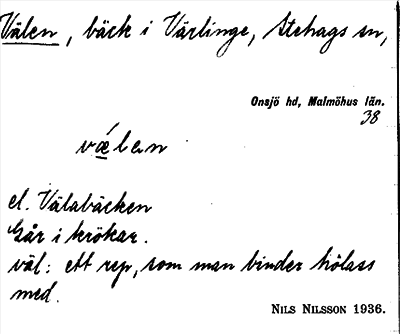 Välen, bäck i Värlinge, Stehags sn,
Onsjö hd, Malmöhus län.
38
vǽlen
el. Välabäcken
Går i krökar.
väl: ett rep, som man binder hölass
med.
NILS NILSSON 1936.